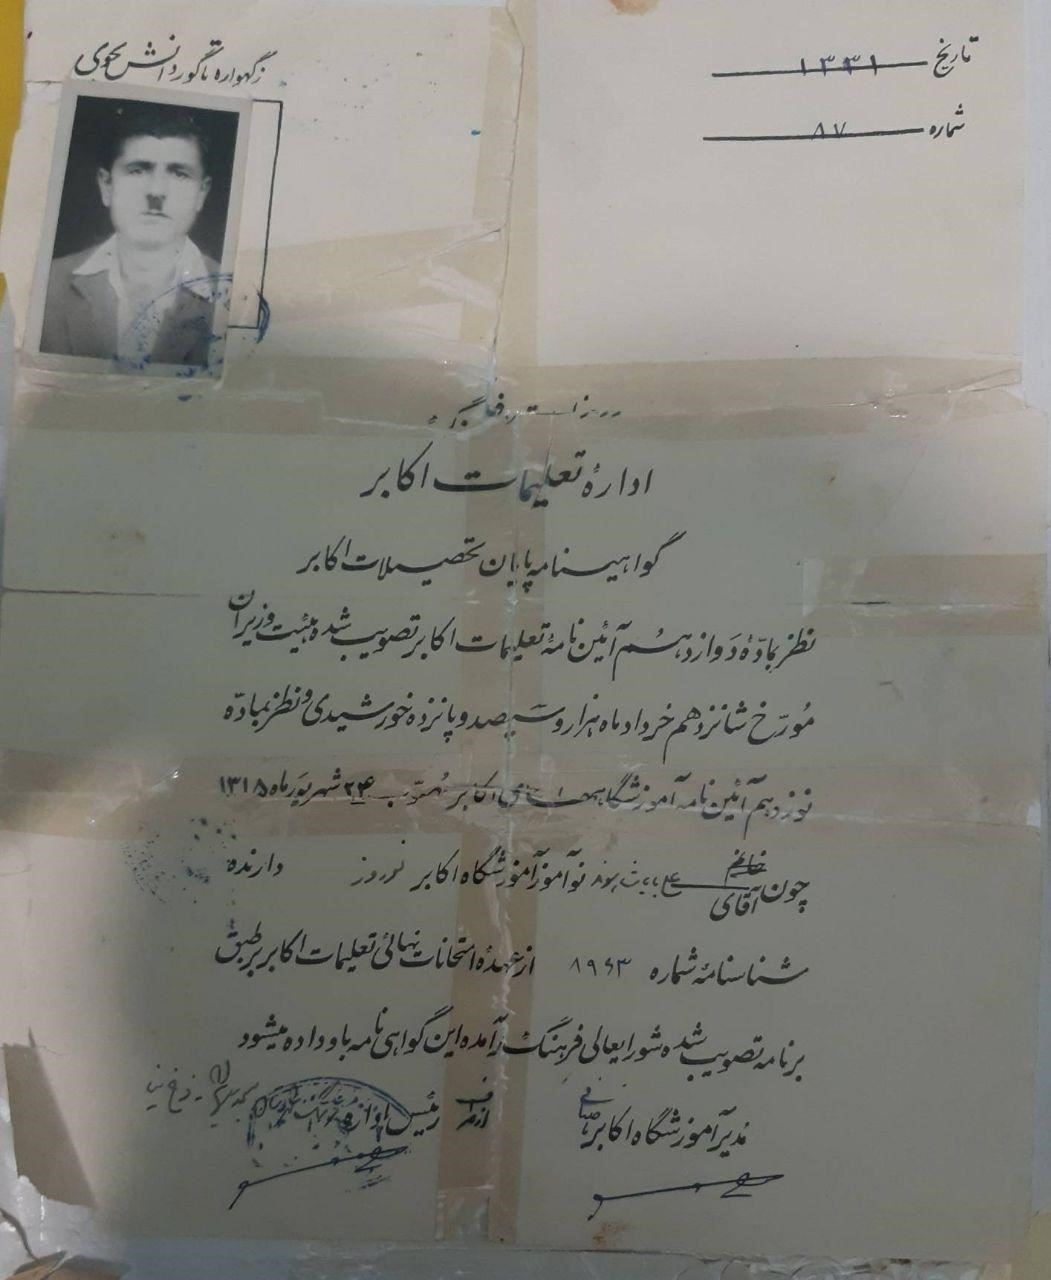 تاریخ ۱۳۳۱
شماره ۸۷
زگهواره تا گور دانش بجوی
ادارهٔ تعلیمات اکابر
گواهینامه پایان تحصیلات اکابر
نظر بمادّهٔ دوازدهم آئین نامهٔ تعلیمات اکابر تصویب شده هیئت وزیران
مُورّخ شانزدهم خرداد ماه هزار و سیصد و پانزده خورشیدی و نظر بمادّه
نوزدهم آئین نامه آموزشگاههای اکابر مُصوّب ۲۴ شهریور ماه ۱۳۱۵
چون خانم آقای نوآموز آموزشگاه اکابر نوروز دارنده
شناسنامهٔ شماره ۸۹۶۳ از عهدهٔ امتحانات نهائی تعلیمات اکابر بر طبق
برنامه تصویب شده شورایعالی فرهنگ برآمده این گواهی نامه باو داده میشود
مُدیر آموزشگاه اکابر
از طرف رئیس اداره